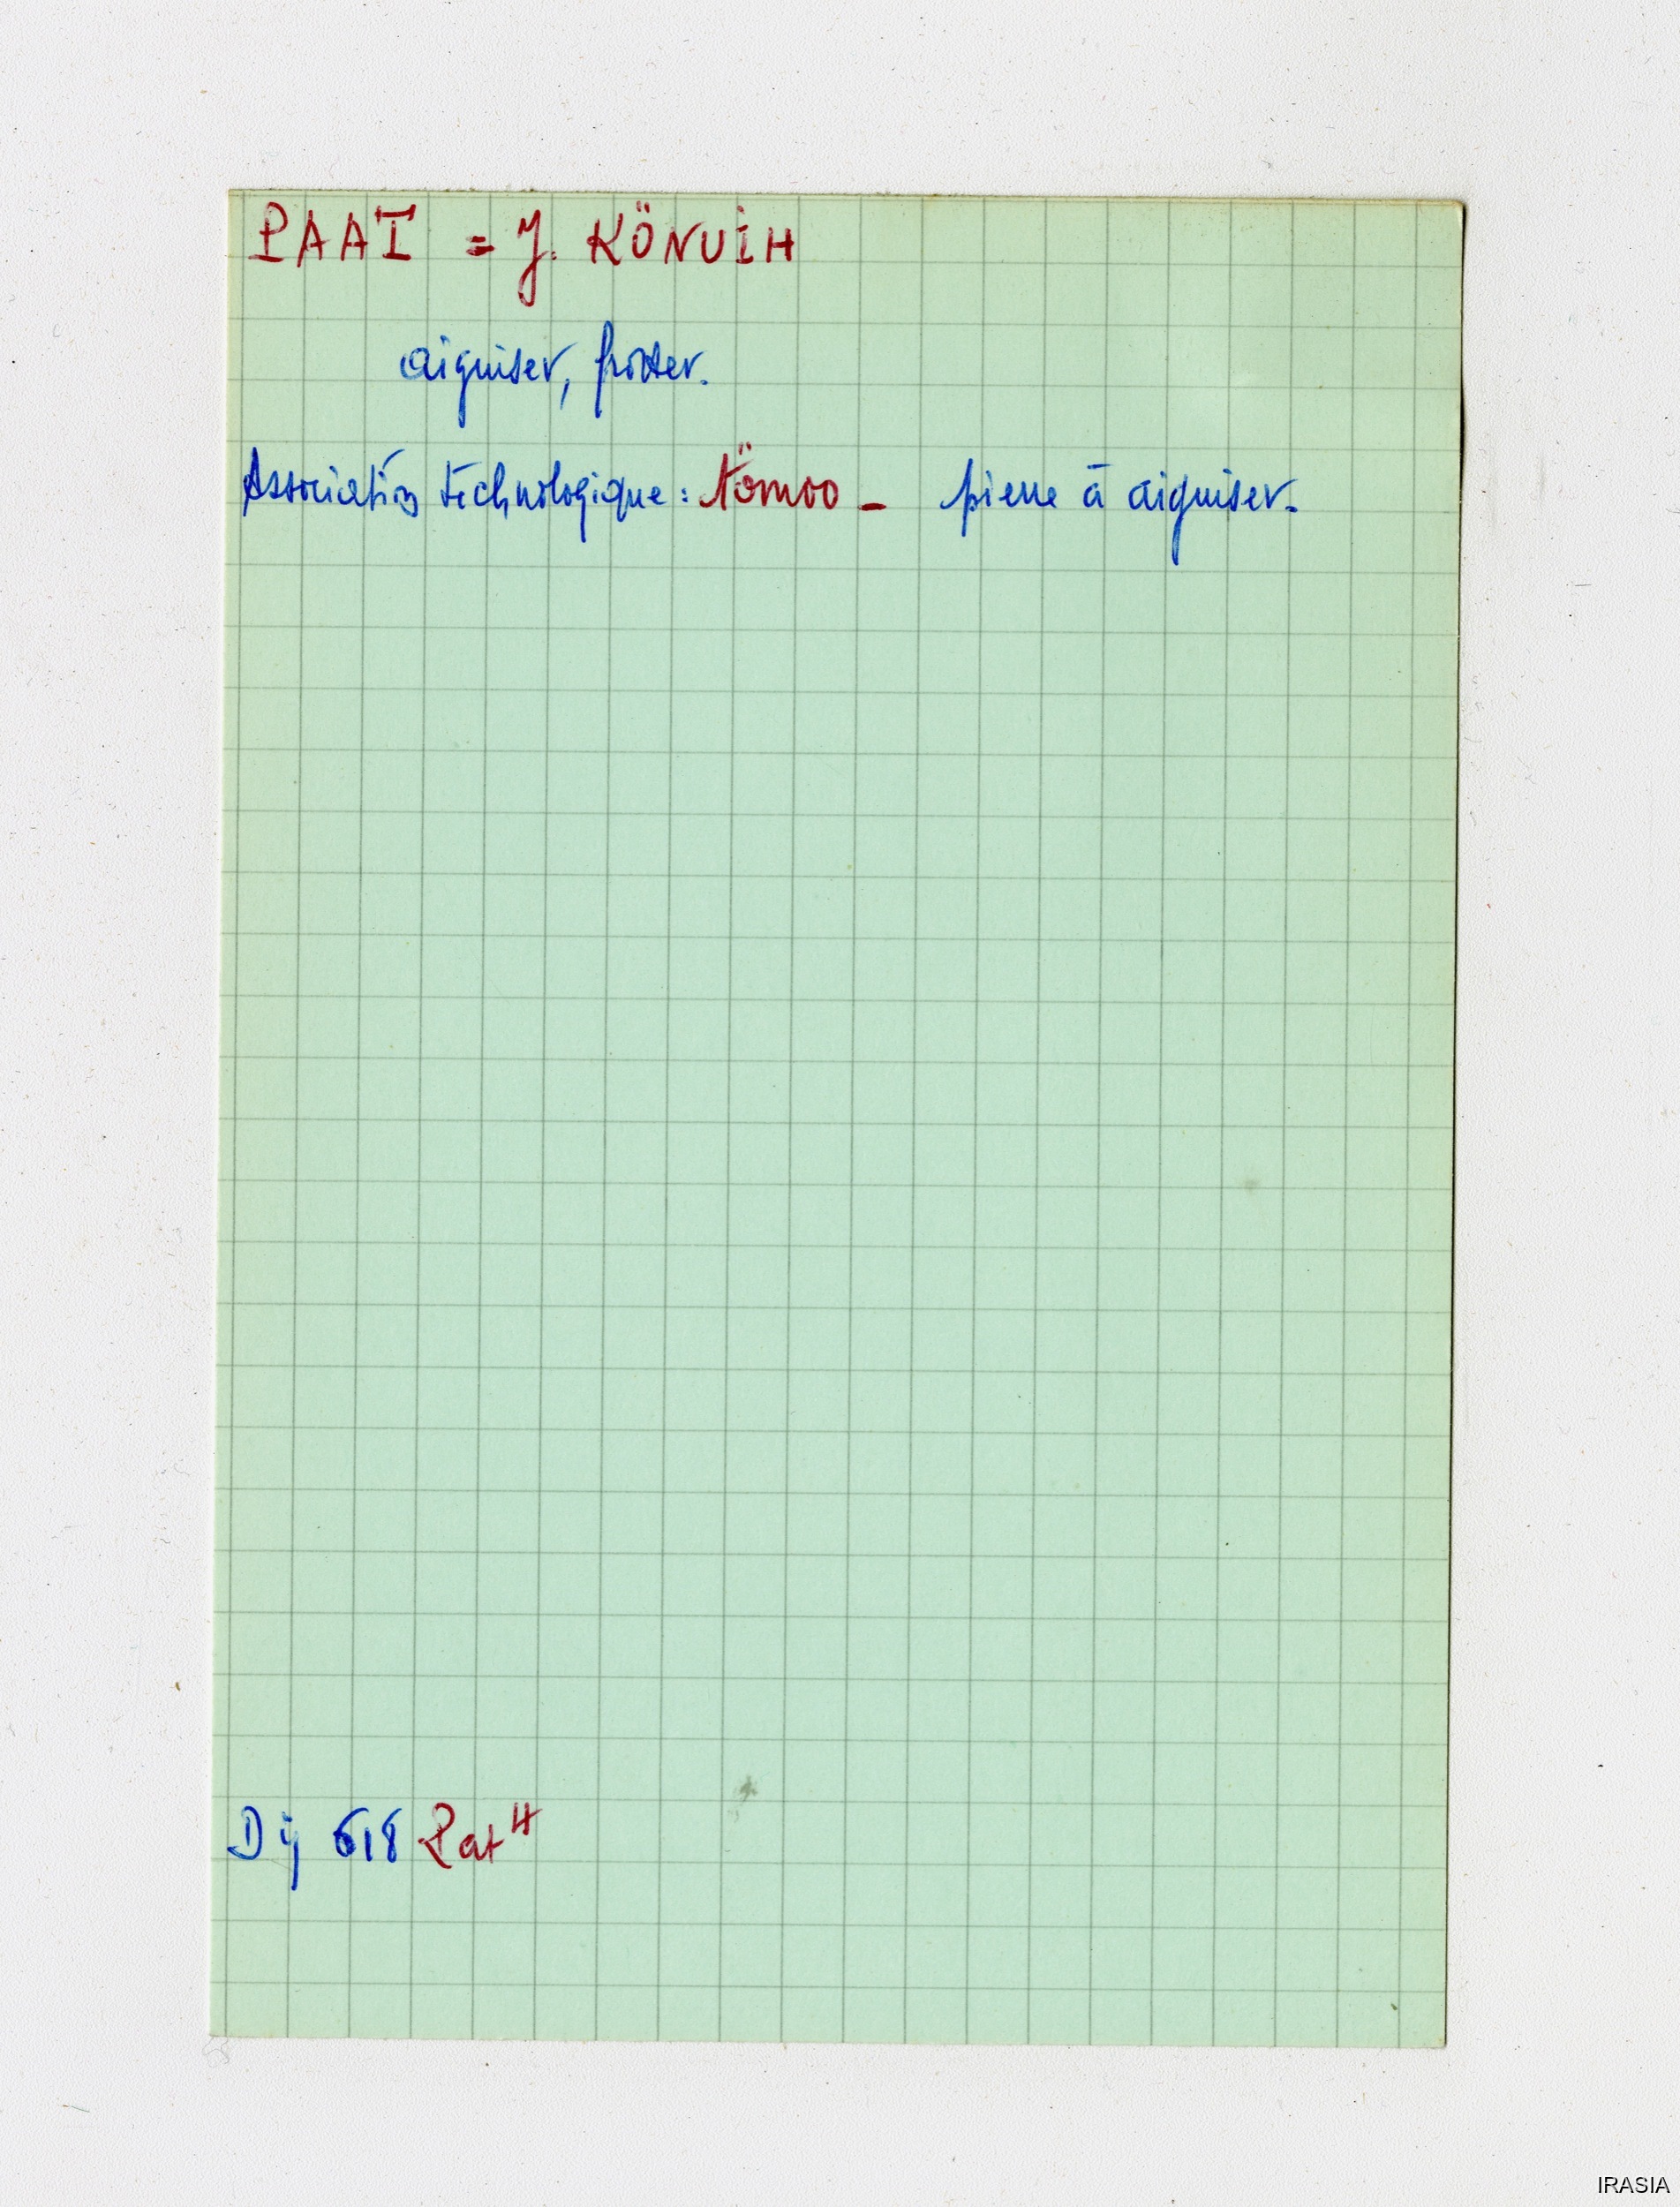 PAAT = J. KÖNUIH
aiguiser, frotter.
Association technologique : tömoo - pierre à aiguiser.
Dij 618 Pat 4
IRASIA